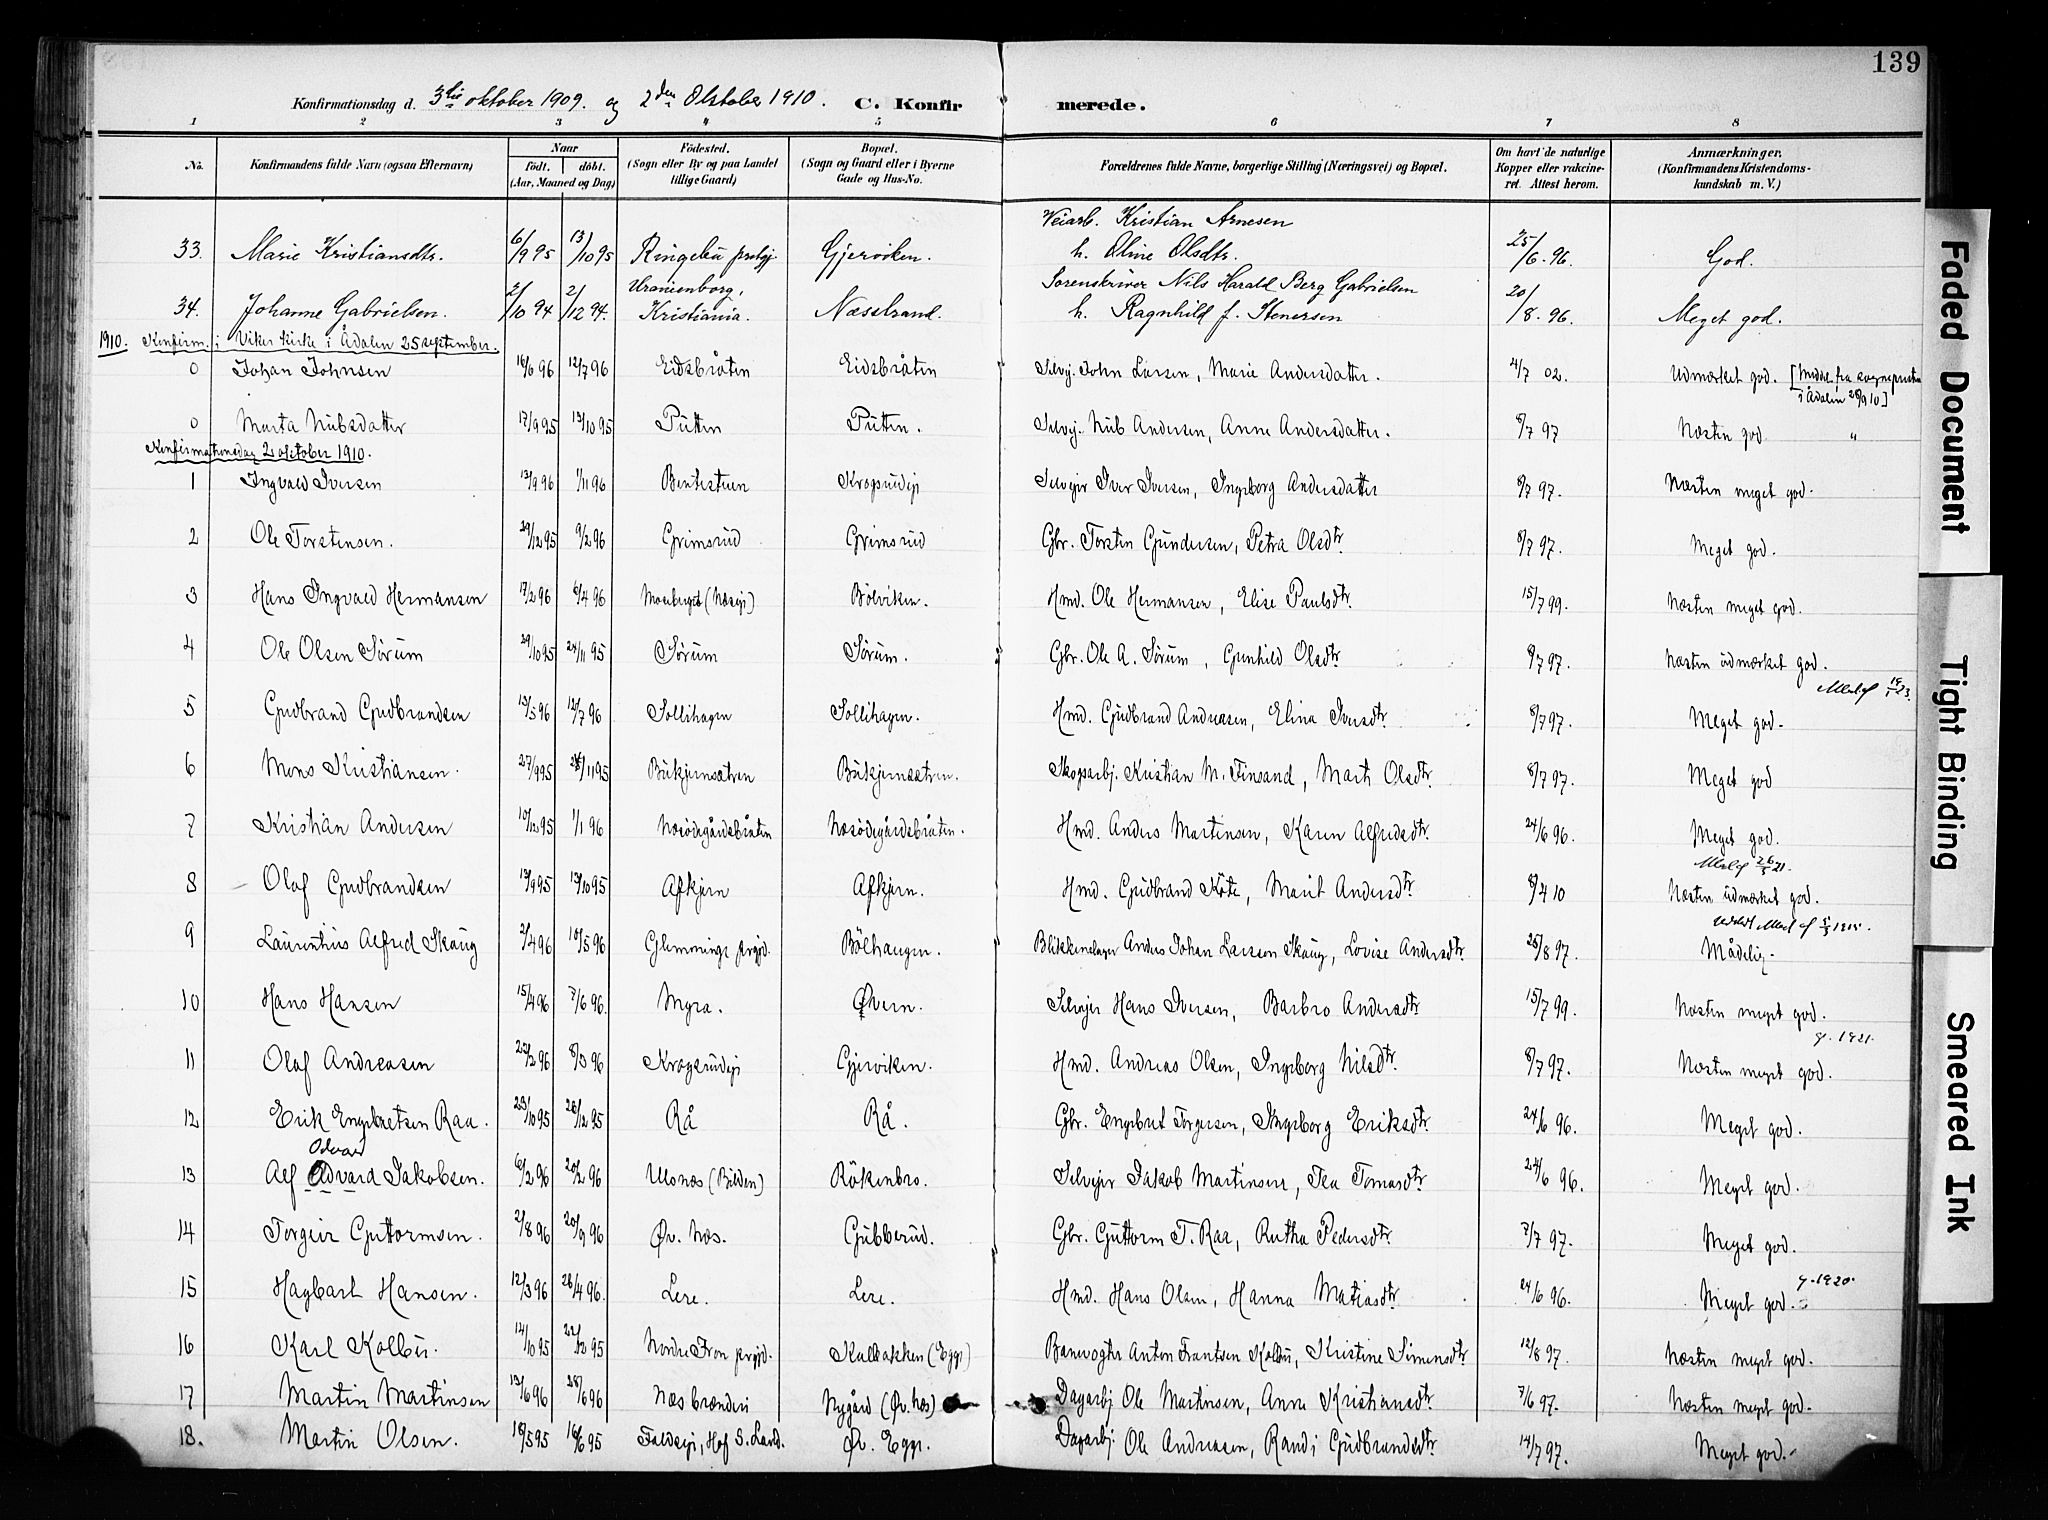 139
Konfirmationsdag d. 3die oktober 1909. og 2den Oktober 1910. C. Konfirmerede.
1 2 3 4 5 6 7 8
No. Konfirmandens fulde Navn (ogsaa Efternavn) Naar født. døbt. (Aar, Maaned og Dag) Fødested. (Sogn eller By og paa Landet tillige Gaard) Bopæl. (Sogn og Gaard eller i Byerne Gade og Hus-No. Forældrenes fulde Navne, borgerlige Stilling (Næringsvei) og Bopæl. Om havt de naturlige Kopper eller vakcineret. Attest herom. Anmærkninger. (Konfirmandens Kristendomskundskab m. V.)
Veiarb. Kristian Arnesen
33. Marie Kristiansdtr. 6/9 95 13/10 95 Ringebu prstgj. Gjerviken. h. Oline Olsdtr. 25/6. 96. God.
Uranienborg, Sorenskriver Nils Harald Berg Gabrielsen
34. Johanne Gabrielsen. 2/10 94 2/12 94. Kristiania. Næsstrand. h. Ragnhild f. Stenersen 20/8. 96. Meget god.
1910. Konfirm. i Viker kirke i Ådalen 25 september.
0 Johan Johnsen 16/6 96 12/7 96 Eidsbråten Eidsbråten Selvej. John Larsen, Marie Andersdatter. 4/7 02. Udmærket god. [Meddelt fra sognepresten i Ådalen 28/9 10]
0 Marta Nubsdatter 17/9 95 13/10 95 Putten Putten. Selvej. Nub Andersen, Anne Andersdatter. 8/7 97 Næsten god "
Konfirmationsdag 2 oktober 1910.
1 Ingvald Iversen 13/9 96 1/11 96 Bentestuen Krogsrudej Selvejer Iver Iversen, Ingeborg Andersdatter 8/7 97. Næsten meget god.
2 Ole Torstensen. 29/12 95 9/2 96 Grimsrud Grimsrud Gbr. Torsten Gundersen, Petra Olsdtr. 8/7 97. Meget god.
3 Hans Ingvald Hermansen 17/2 96 6/4 96 Bölviken. Hmd. Ole Hermansen, Elise Paulsdtr. 15/7 99. Næsten meget god.
4 Ole Olsen Sørum 29/10 95 24/11 95 Sørum Sørum. Gbr. Ole A. Sørum, Gunhild Olsdtr. 8/7 97. Næsten udmærket god.
5 Gudbrand Gudbrandsen 13/5 96 12/7 96 Sollihagen Sollihagen. Hmd. Gudbrand Andersen, Elina Iversdtr. 8/7 97. Meget god.
6 Mons Kristiansen. 27/9 95 24/11 95 Bukjernsætren Bukjernsætren. Skogsarbj. Kristian M. Finsand, Marit Olsdtr. 8/7 97. Meget god
7 Kristian Andersen 10/12 95 1/1 96 Næsödegårdsbråten Næsödegårdsbråten. Hmd. Anders Martinsen, Karen Alfredsdtr. 24/6 96. Meget god.
8 Olaf Gudbrandsen 13/9 95 13/10 95 Afkjern Afkjern. Hmd. Gudbrand Köte, Marit Andersdtr. 8/4 10 Næsten udmærket god.
9 Laurentius Alfred Skaug 2/4 96 10/5 96 Glemminge prgjd. Bölhaugen. Blikkenslager Anders Johan Larsen Skaug, Lovise Andersdtr. 25/8 97. Mådelig.
10 Hans Hansen 15/4 96 7/6 96. Myra. Øvern. Selvejer Hans Iversen, Barbro Andersdtr 15/7 99. Næsten meget god.
g. 1921.
11 Olaf Andreasen 22/2 96 8/3 96 Krogsrudej Gjerviken. Hmd. Andreas Olsen, Ingeborg Nilsdtr. 8/7 97. Næsten meget god.
12 Erik Engebretsen Raa. 23/10 95 26/12 95 Rå Rå. Gbr. Engebret Torgersen, Ingeborg Eriksdtr. 24/6 96. Meget god.
Odvar
13 Alf Advard Jakobsen. 6/2 96 20/2 96 Ulsnæs (Bilden) Rökenbro. Selvejer Jakob Martinsen, Tea Tomasdtr. 24/6 96. Meget god.
14 Torgeir Guttormsen. 2/8 96 20/9 96 Øv. Næs. Gubberud. Gbr. Guttorm T. Raa, Rutha Pedersdtr. 7/7 97. Meget god.
15 Hagbart Hansen. 12/3 96 26/4 96. Lere. Lere. Hmd. Hans Olsen, Hanna Matiasdtr. 24/6 96. Meget god. g. 1920.
16 Karl Kolbu. 14/10 95 22/12 95 Nordre Fron prgjd. Kulbakken (Egge) Banevogter Anton Frantsen Kolbu, Kristine Simensdtr 12/8 97. Næsten meget god.
17 Martin Martinsen 13/6 96 28/6 96 Næs brænderi Nygård (Øv. Næs) Dagarbj Ole Martinsen, Anne Kristiansdtr. 7/6 97. Næsten meget god.
18. Martin Olsen. 18/5 95 16/6 95 Faldsej, Hof S. Land. Øv. Egge. Dagarbj. Ole Andreasen, Randi Gudbrandsdtr. 14/7 97. Meget god.
Faded Document
Tight Binding
Smeared Ink